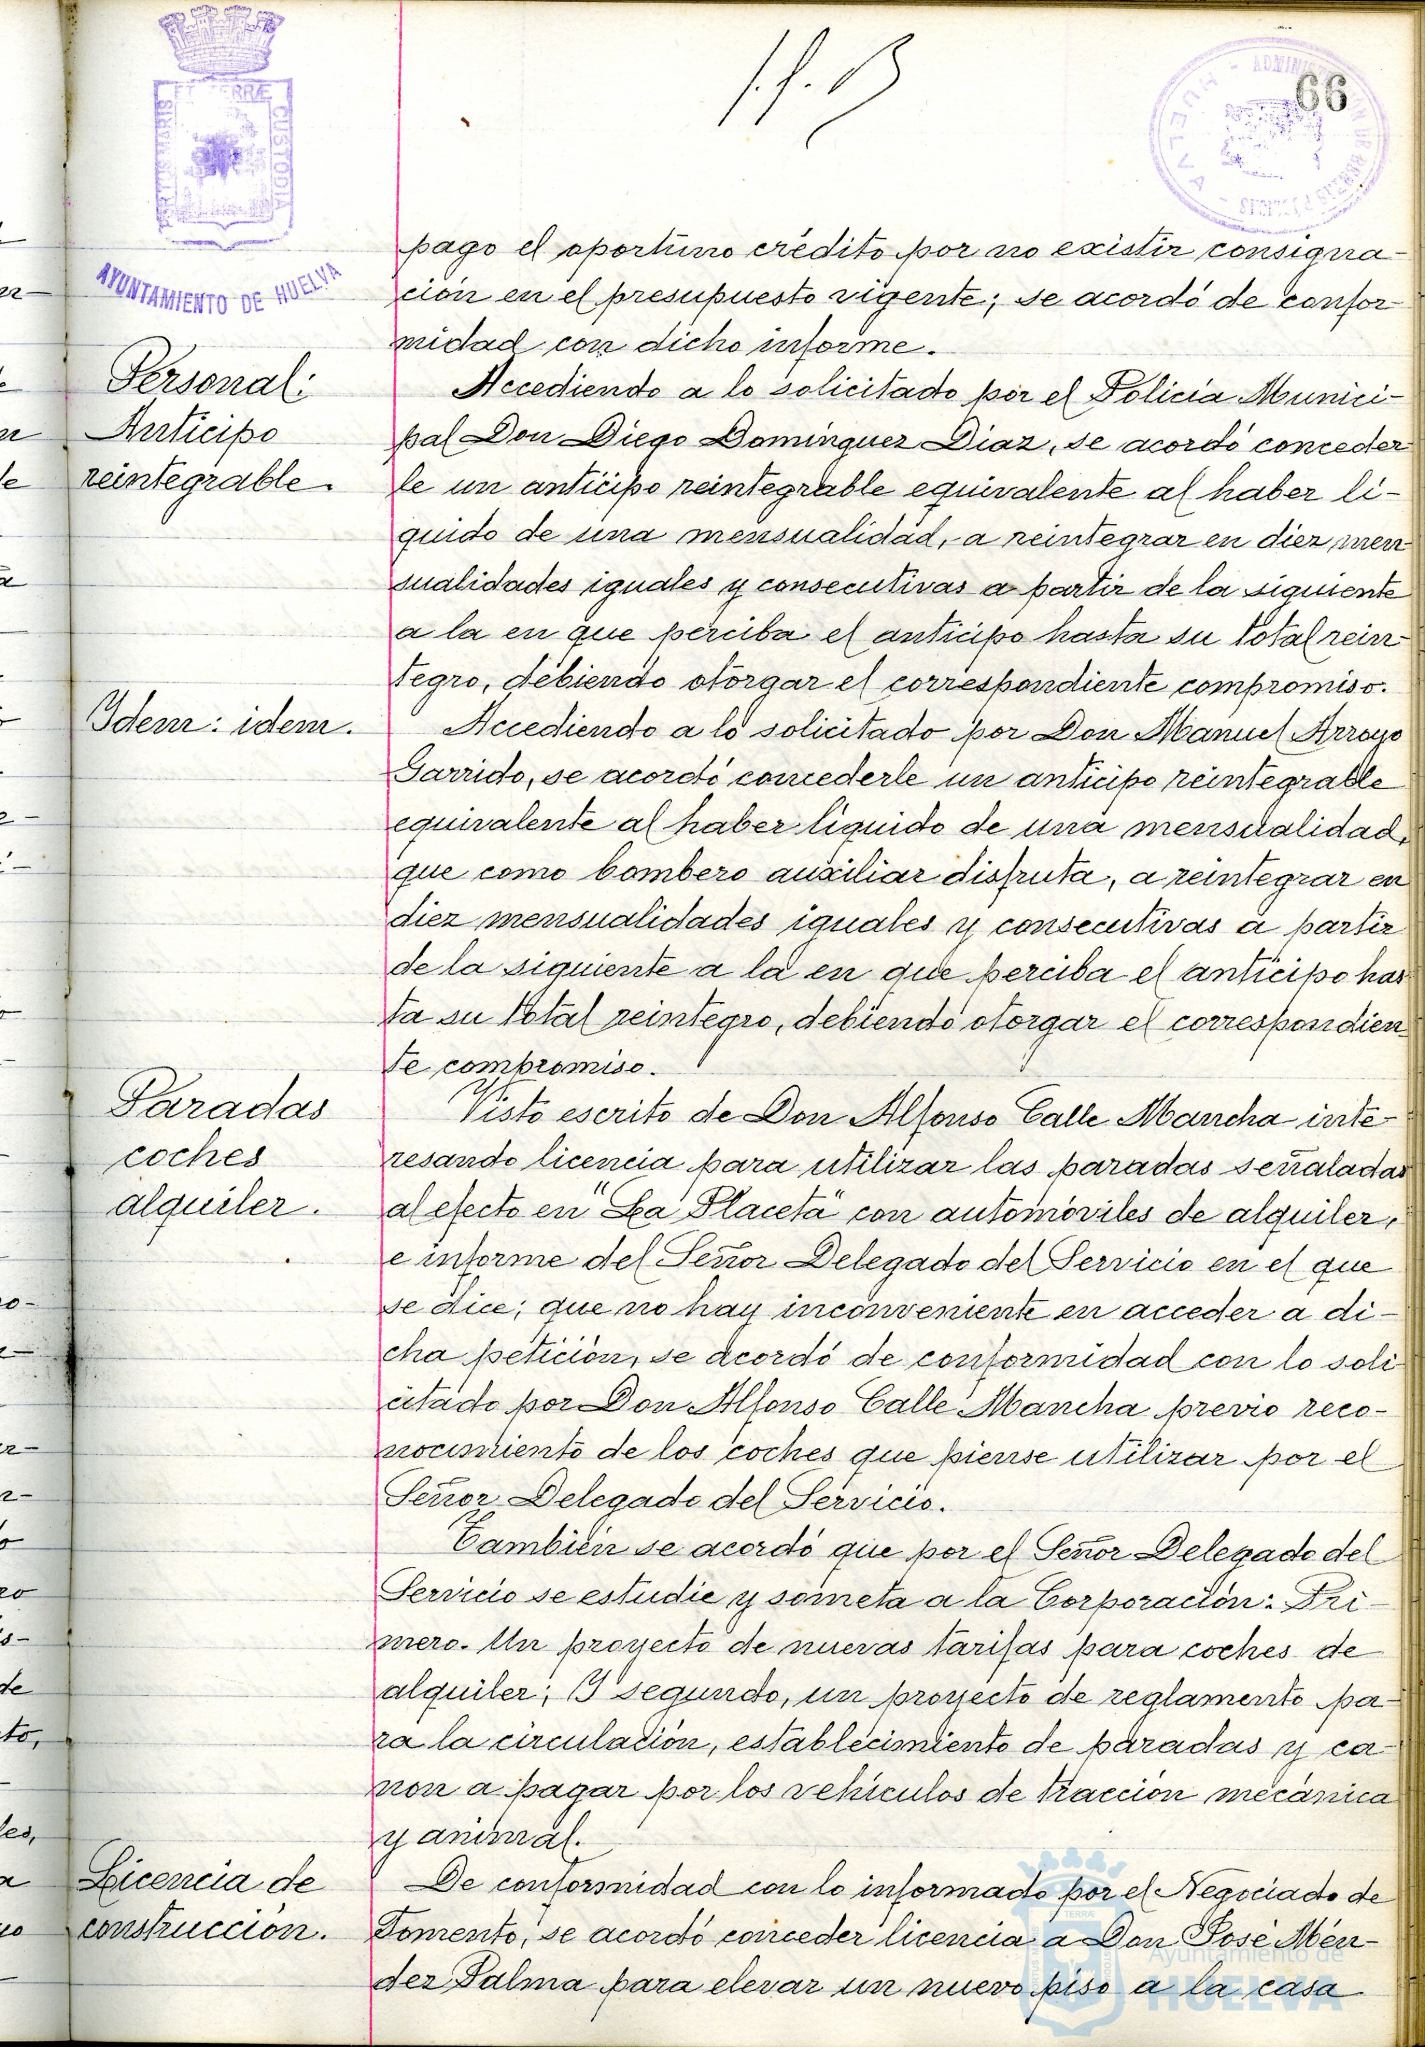 66
PORTUS MARIS ET TERRÆ CUSTODIA
AYUNTAMIENTO DE HUELVA
HUELVA
pago el oportuno crédito por no existir consigna-
ción en el presupuesto vigente; se acordó de confor-
midad con dicho informe.
Personal:
Anticipo
reintegrable.
Accediendo a lo solicitado por el Policía Munici-
pal Don Diego Dominguez Diaz, se acordó conceder
le un anticipo reintegrable equivalente al haber lí-
quido de una mensualidad, a reintegrar en diez men
sualidades iguales y consecutivas a partir de la siguiente
a la en que perciba el anticipo hasta su total rein-
tegro, debiendo otorgar el correspondiente compromiso.
Idem: idem.
Accediendo a lo solicitado por Don Manuel Arroyo
Garrido, se acordó concederle un anticipo reintegrable
equivalente al haber líquido de una mensualidad,
que como bombero auxiliar disfruta, a reintegrar en
diez mensualidades iguales y consecutivas a partir
de la siguiente a la en que perciba el anticipo has
ta su total reintegro, debiendo otorgar el correspondien
te compromiso.
Paradas
coches
alquiler.
Visto escrito de Don Alfonso Calle Mancha inte-
resando licencia para utilizar las paradas señaladas
al efecto en "La Placeta" con automóviles de alquiler,
e informe del Señor Delegado del Servicio en el que
se dice; que no hay inconveniente en acceder a di-
cha petición, se acordó de conformidad con lo soli
citado por Don Alfonso Calle Mancha previo reco-
nocimiento de los coches que piense utilizar por el
Señor Delegado del Servicio.
También se acordó que por el Señor Delegado del
Servicio se estudie y someta a la Corporación: Pri-
mero. Un proyecto de nuevas tarifas para coches de
alquiler; Y segundo, un proyecto de reglamento pa-
ra la circulación, establecimiento de paradas y ca-
non a pagar por los vehículos de tracción mecánica
y animal.
Licencia de
construcción.
De conformidad con lo informado por el Negociado de
Fomento, se acordó conceder licencia a Don José Mén-
dez Palma para elevar un nuevo piso a la casa
Ayuntamiento de
HUELVA